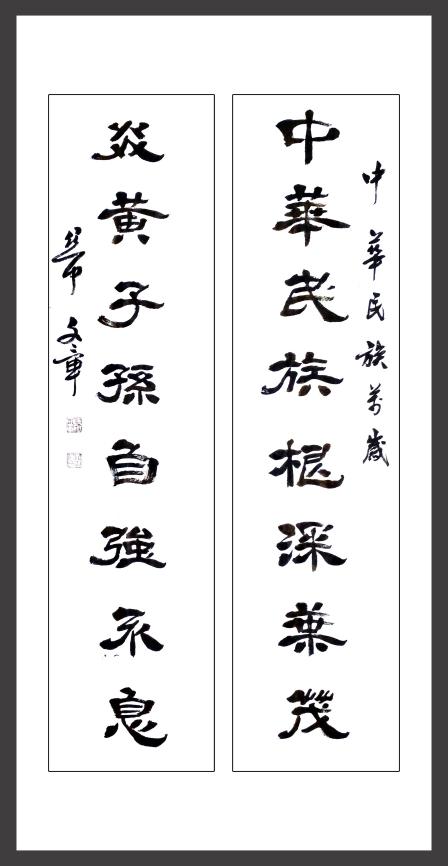 中華民族萬歲
中華民族根深葉茂
炎黄子孫自強不息
文章